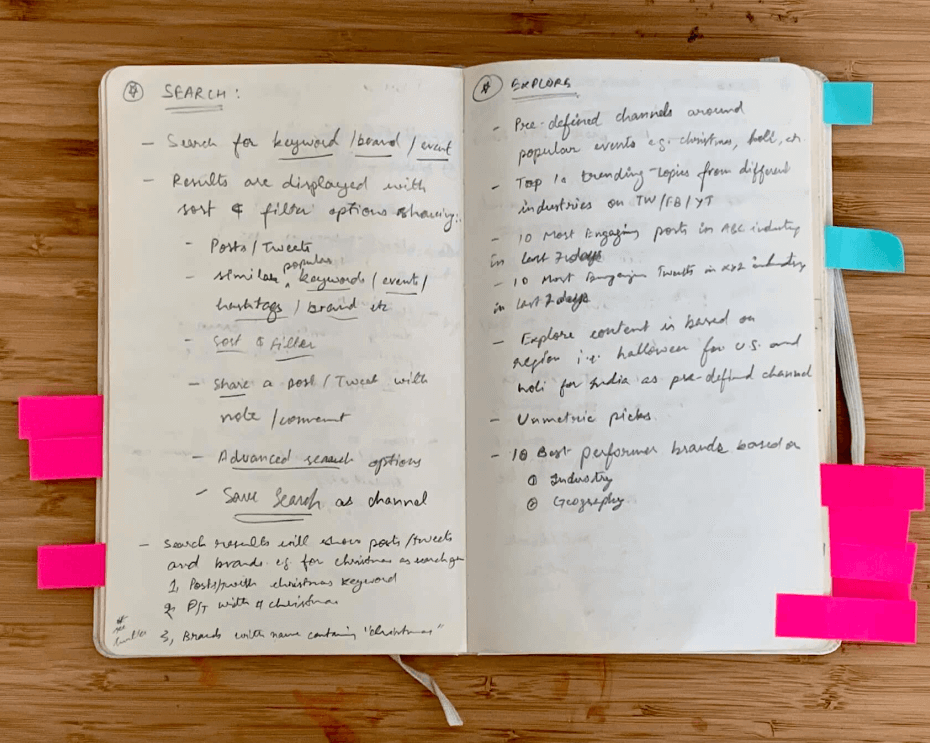 SEARCH:
- Search for keyword / brand / event
- Results are displayed with
sort & filter options showing:
- Posts / Tweets
- similar popular keywords / events /
hashtags / brand etc
- Sort & Filter
- Share a post / Tweet with
note / comment
- Advanced search options
- Save Search as channel
- Search results will show posts / tweets
and brands. eg. for christmas as search
1, Posts/ with christmas keyword
2, P/T with # christmas
3, Brands with name containing "christmas"
EXPLORE
- Pre-defined channels around
popular events e.g. christmas, holi, etc.
- Top 10 trending-topics from different
industries on TW/FB/YT
- 10 Most Engaging posts in ABC industry
in last 7 days
- 10 Most Engaging Tweets in XYZ industry
in last 7 days
- Explore content is based on
region i.e. halloween for U.S. and
holi for India as pre-defind channel
- Unmetric picks.
- 10 Best performer brands based on
① Industry
② Geography